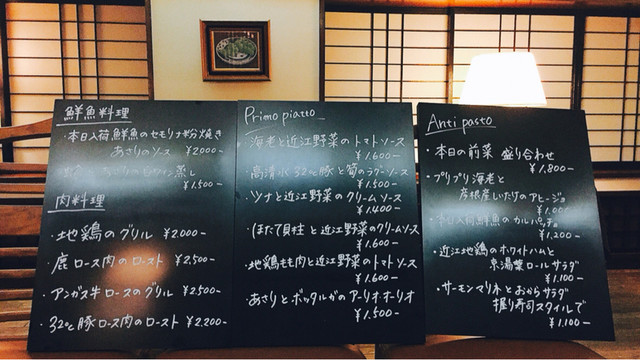 鮮魚料理
・本日入荷鮮魚のセモリナ粉焼き
あさりのソース ¥2000-
蒸し
¥1.500-
肉料理
・地鶏のグリル ¥2.000-
・鹿ロース肉のロースト ¥2.500-
・アンガス牛ロースのグリル ¥2,500-
・32℃豚ロース肉のロースト ¥2.200-
Primo piatto
・海老と近江野菜のトマトソース
¥1.600-
・高清水32℃豚と筍のラグーソース
¥1.500-
・ツナと近江野菜のクリームソース
¥1.400-
・ほたて貝柱と近江野菜のクリームソース
¥1.600-
・地鶏もも肉と近江野菜のトマトソース
¥1.600-
・あさりとボッタルガのアーリオオーリオ
¥1.500-
Antipasto
・本日の前菜 盛り合わせ
¥1.800-
・プリプリ海老と
彦根産しいたけのアヒージョ
・本日入荷鮮魚のカルパッチョ
¥1.200-
・近江地鶏のホワイトハムと
京湯葉ロールサラダ
¥1.100-
・サーモンマリネとおからサラダ
握り寿司スタイルで
¥1.100-